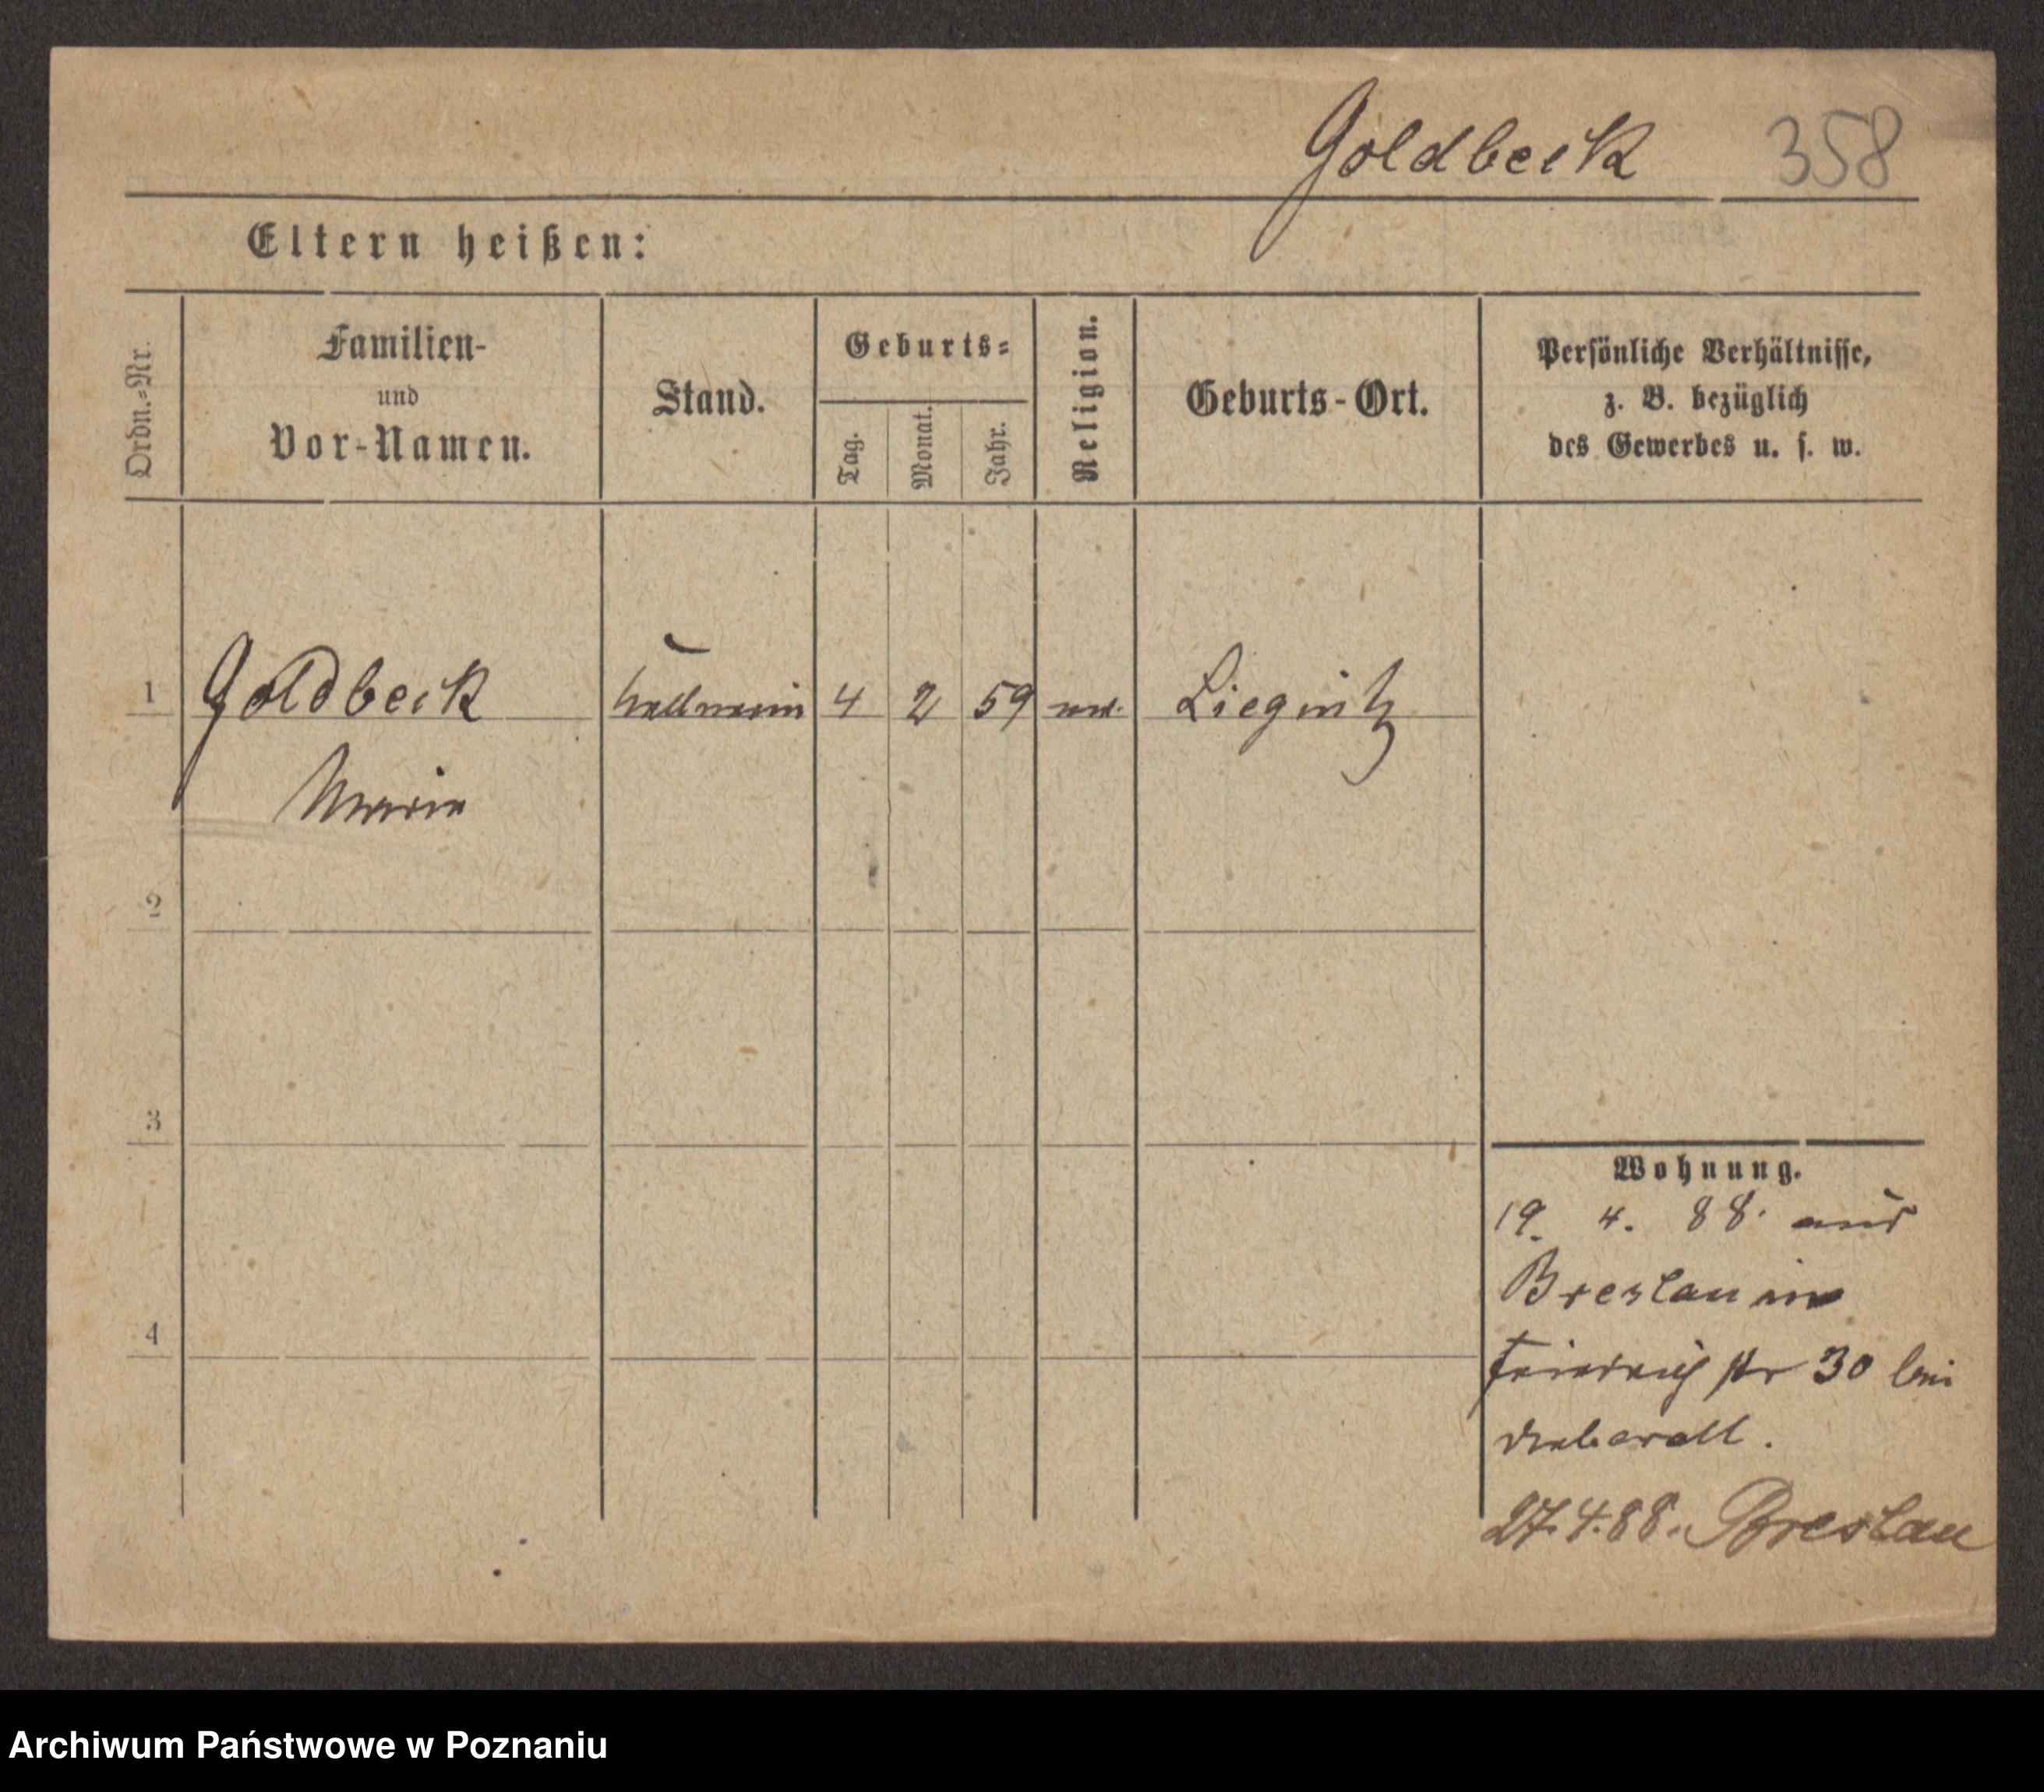 Goldbeck 358
Eltern heißen:
Ordn.-Nr.
Familien-
und
Vor-Namen.
Stand.
Geburts-
Tag.
Monat.
Jahr.
Religion.
Geburts-Ort.
Persönliche Verhältnisse,
z. B. bezüglich
des Gewerbes u. s. w.
1 Goldbeck Kellnerin 4 2 59 Liegnitz
Maria
2
3
4
Wohnung.
19. 4. 88. aus
Breslau in
Friedrichstr 30 bei
27.4.88. Breslau
Archiwum Państwowe w Poznaniu